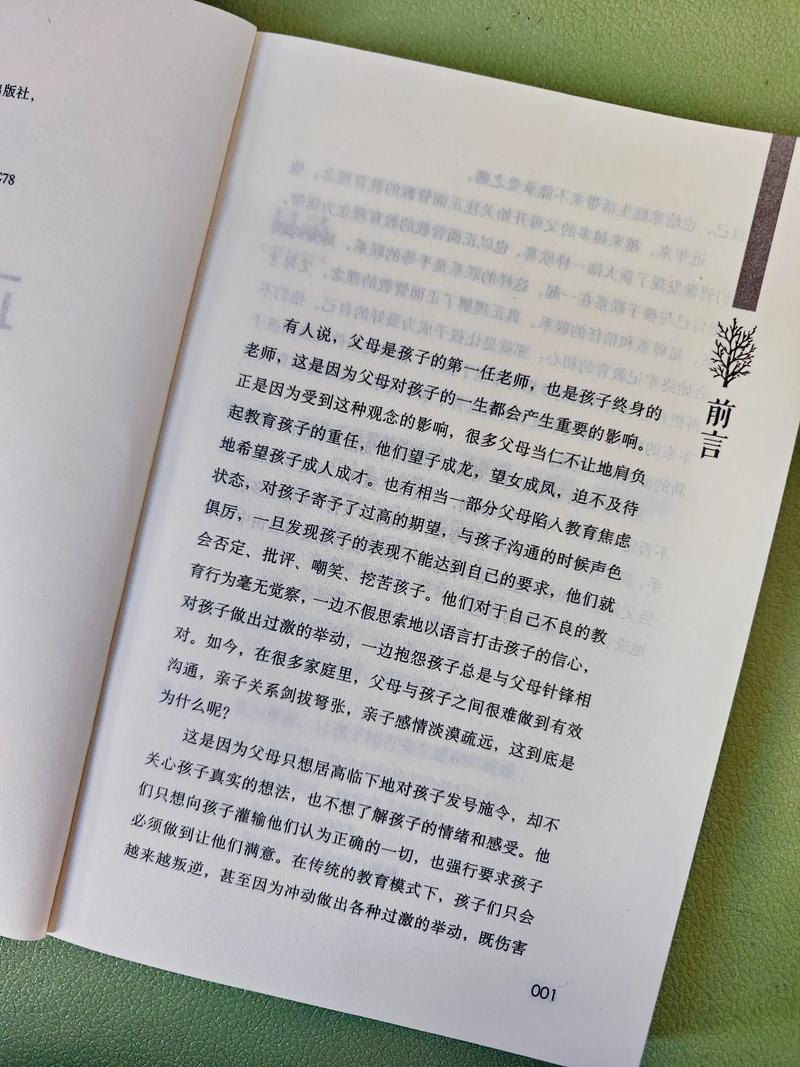 出版社,
C78
前言
有人说，父母是孩子的第一任老师，也是孩子终身的
老师，这是因为父母对孩子的一生都会产生重要的影响。
正是因为受到这种观念的影响，很多父母当仁不让地肩负
起教育孩子的重任，他们望子成龙，望女成凤，迫不及待
地希望孩子成人成才。也有相当一部分父母陷入教育焦虑
状态，对孩子寄予了过高的期望，与孩子沟通的时候声色
俱厉，一旦发现孩子的表现不能达到自己的要求，他们就
会否定、批评、嘲笑、挖苦孩子。他们对于自己不良的教
育行为毫无觉察，一边不假思索地以语言打击孩子的信心，
对孩子做出过激的举动，一边抱怨孩子总是与父母针锋相
对。如今，在很多家庭里，父母与孩子之间很难做到有效
沟通，亲子关系剑拔弩张，亲子感情淡漠疏远，这到底是
为什么呢？
这是因为父母只想居高临下地对孩子发号施令，却不
关心孩子真实的想法，也不想了解孩子的情绪和感受。他
们只想向孩子灌输他们认为正确的一切，也强行要求孩子
必须做到让他们满意。在传统的教育模式下，孩子们只会
越来越叛逆，甚至因为冲动做出各种过激的举动，既伤害
001